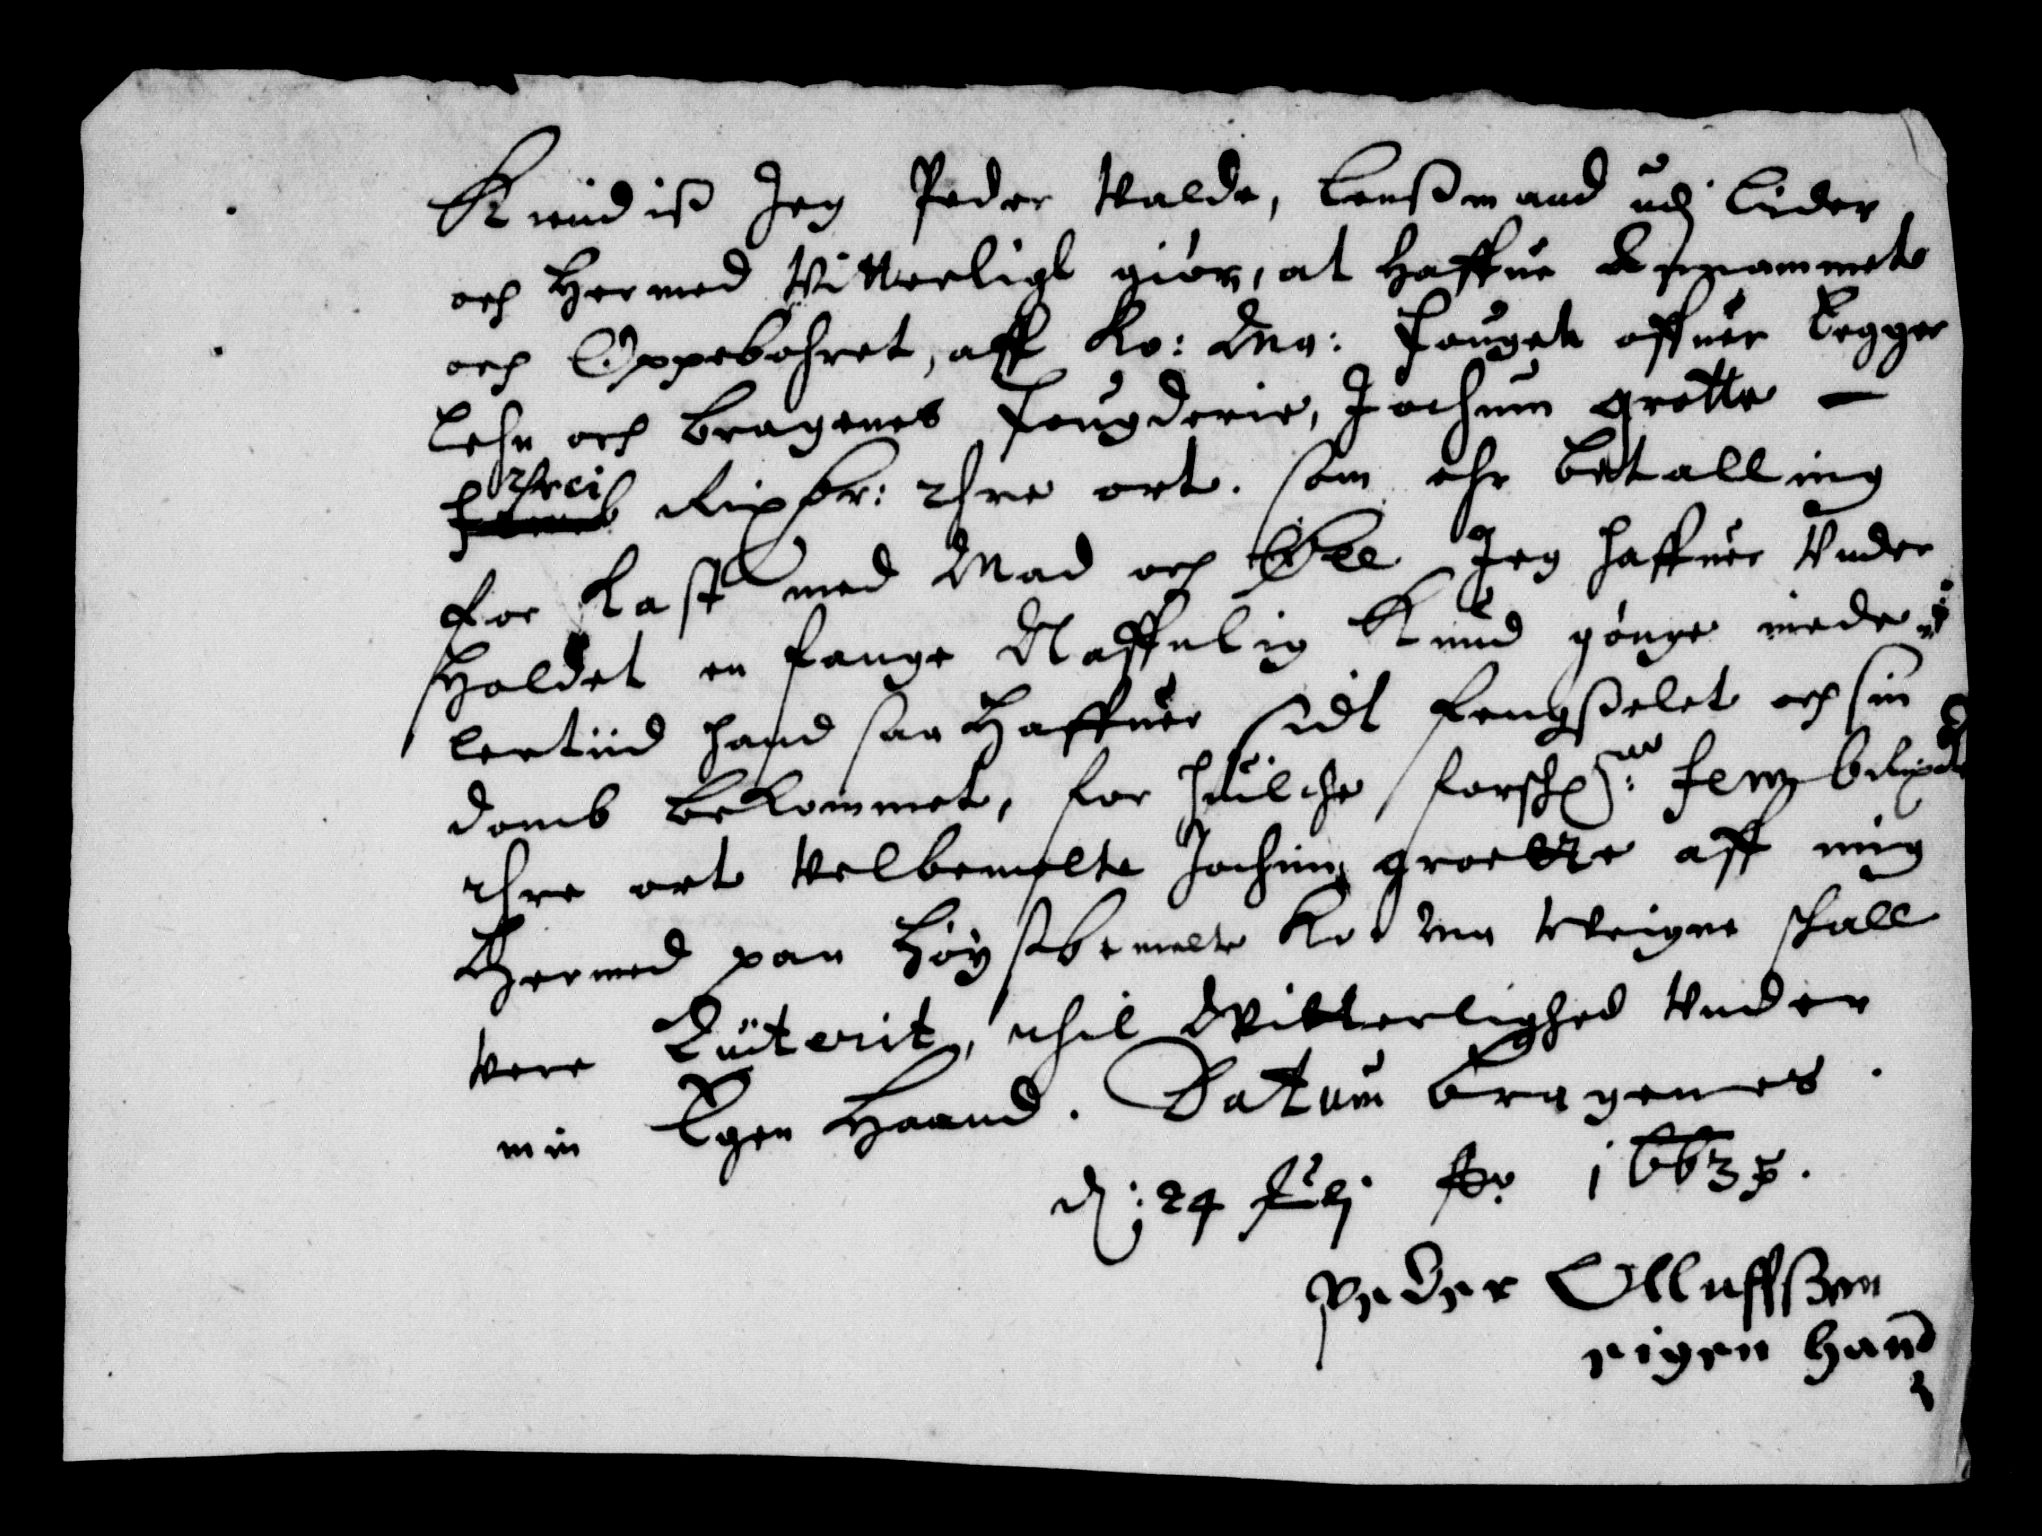 Kiendiss Jeg Peder Valde, Lenßmand udj Lider
och Hermed Vitterligt giör, at Haffue Annammet
och Oppebohret, aff Ko: May: Fouget offuer Egger
Lehn och Bragenes Fougderie, Jochum grotte —
threi Rixdr: thre ort. som ehr betalling
for Kast med Mad och Öell Jeg haffuer Vnder
Holdet en fange Naffnlig Knud gönge mede
lertiid hand saa Haffuer sidt fengßelet och siu
domb bekommet, for huilche forschr:ne fem Rixdr
thre ort Velbemelte Jochim groette aff mig
Hermed paa Höystbemelte Ko May Weigne schall
vere Quiterit, thil Witterlighed Vnder
min Egen Haand. Datum Bragenes.
d: 24 Julj Ao 1663.
Peder Olluffßen
eigen Hand